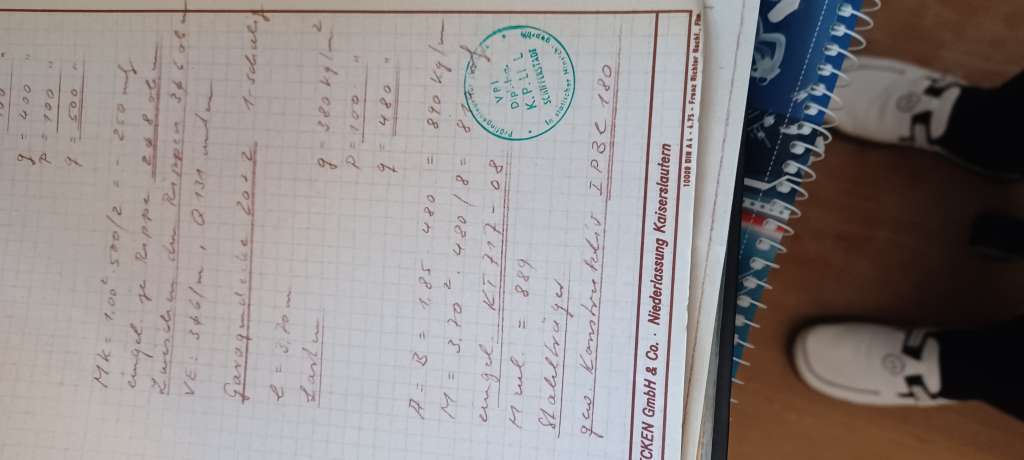 g = 400 "
p = 100 "
q = 500 "
MK = 1.00² · 500/2 = - 250 mkg
eingel. je Rippe 2 Ø 8 oben
Zwischen den Rippen 3 Ø 6 ob
VE = 3 Ø 6/m, Q 131 unten
Garagendecke 20 + 2
l = 3.70 m
Lasten
g = 380 kg/m²
p = 100 "
q = 480 "
A = B = 1,85 · 480 = 890 kg/m
M = 3.70² · 480/8 =
eingel. KT 717 - 08
M zul. = 889
Stahlträger
gew. Konstruktiv IPBL 180
VPI
SCHIFFERSTADT
in statischer Hinsicht
ECKEN GmbH & Co. · Niederlassung Kaiserslautern
10000 DIN A 4 - 4.75 - Franz Richter Nachf.,